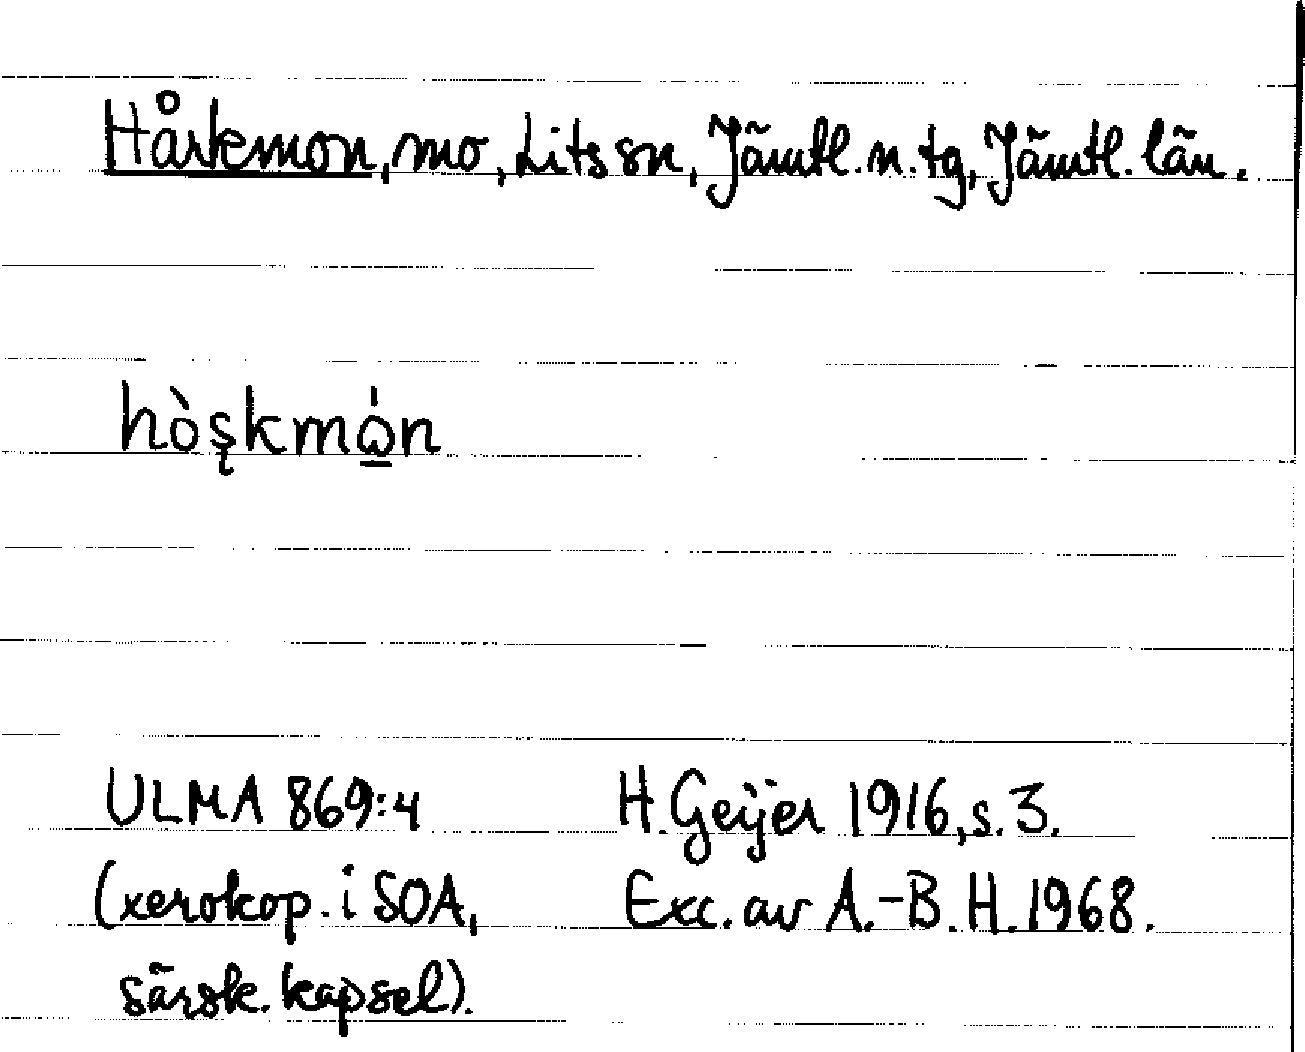 Hårkemon, mo, Lits sn, Jämtl. n. tg, Jämtl. län.
hòşkmώ̣n
ULMA 869:4 H. Geijer 1916, s. 3.
(xerokop. i SOA, Exc. av A.-B. H. 1968.
särsk. kapsel).